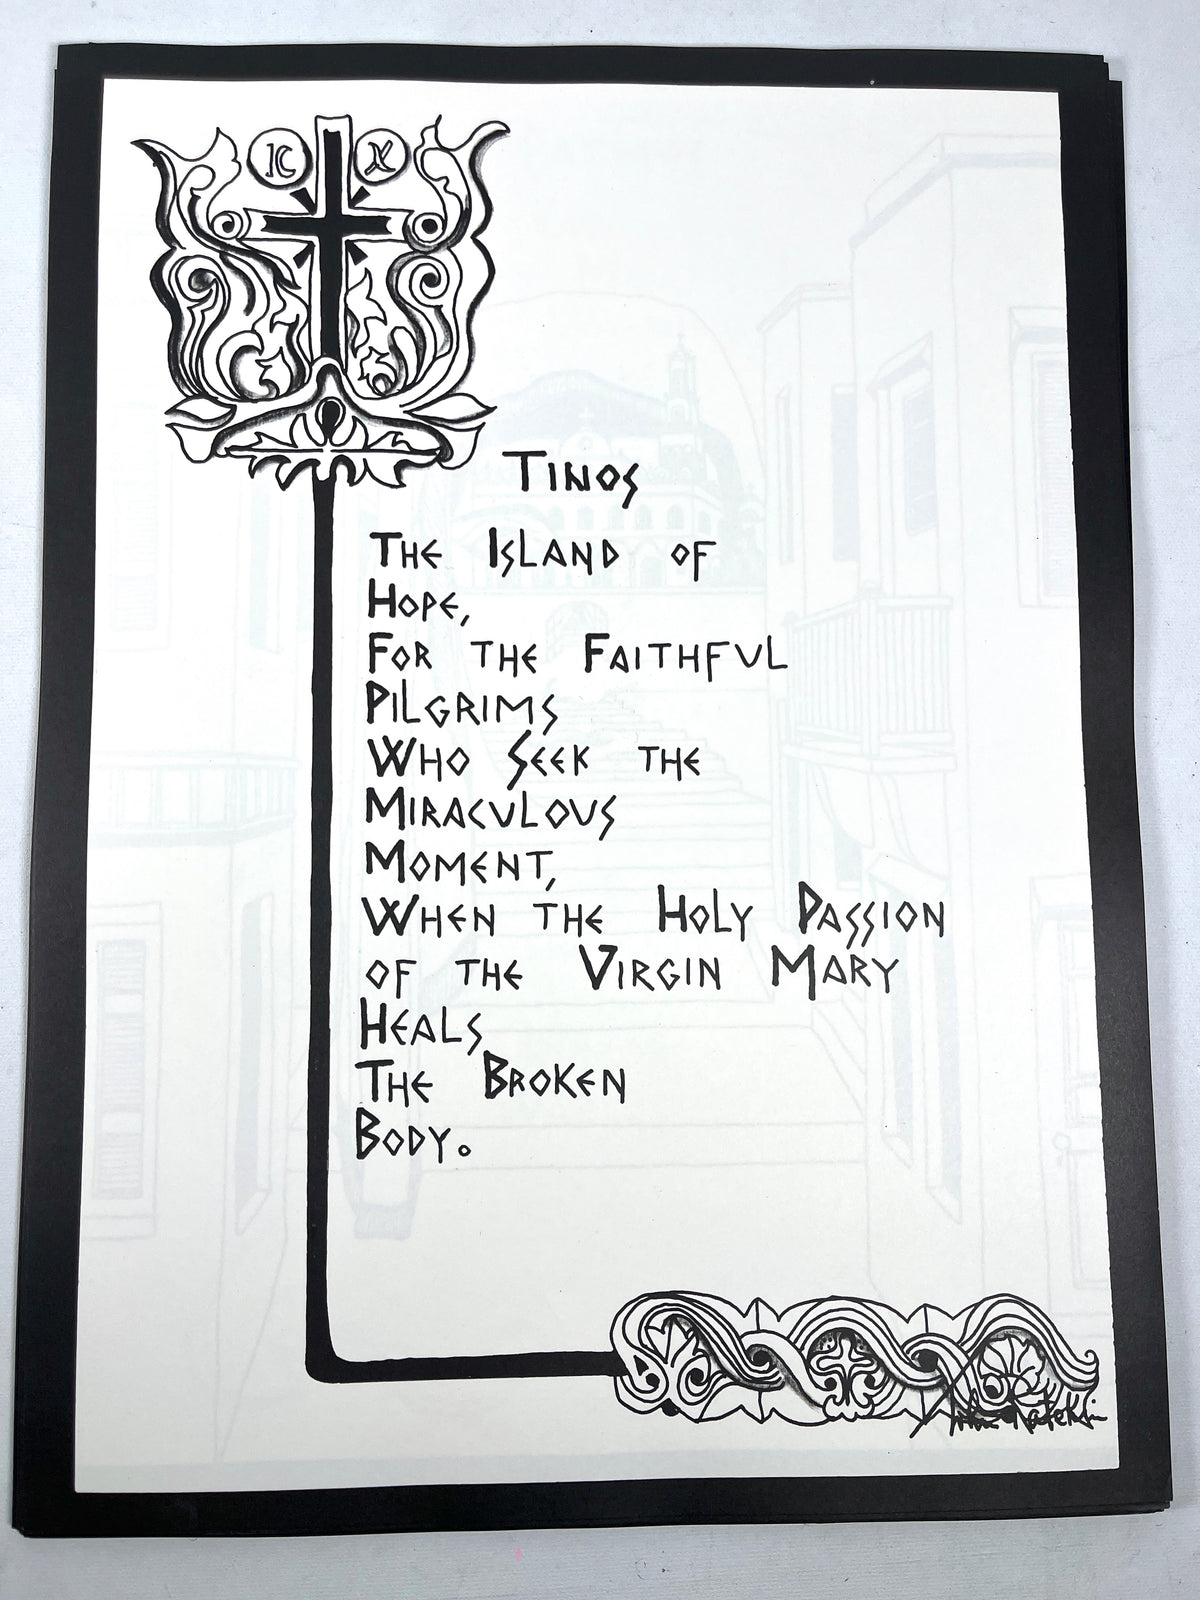 IC X
Tinos
The Island of
Hope,
For the Faithful
Pilgrims
Who Seek the
Miraculous
Moment,
When the Holy Passion
of the Virgin Mary
Heals
The Broken
Body.